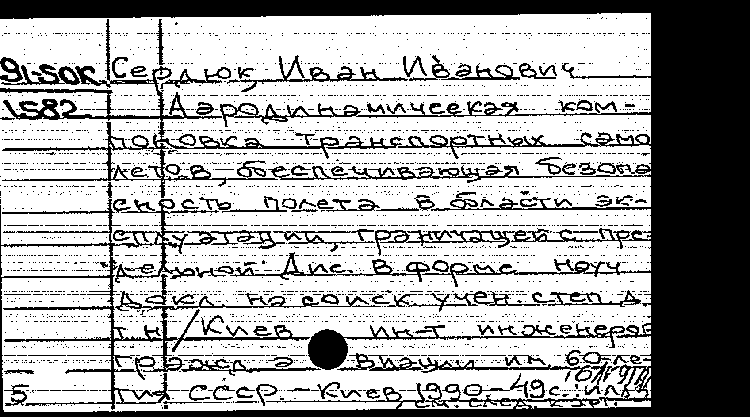 91-SOK Сердюк, Иван Иванович
1582 Аэродинамическая ком-
поновка транспортных само
летов, обеспечивающая безопа
сность полета в области эк-
сплуатации, граничащей с пре-
дельной. Дис. в форме науч
докл. на соиск. учен. степ. д.
т.н / Киев ин-т инженеров
гражд а виации им. 60-ле-
5 тия СССР. - Киев, 1990 - 49 с.: ил
см. след. карт.